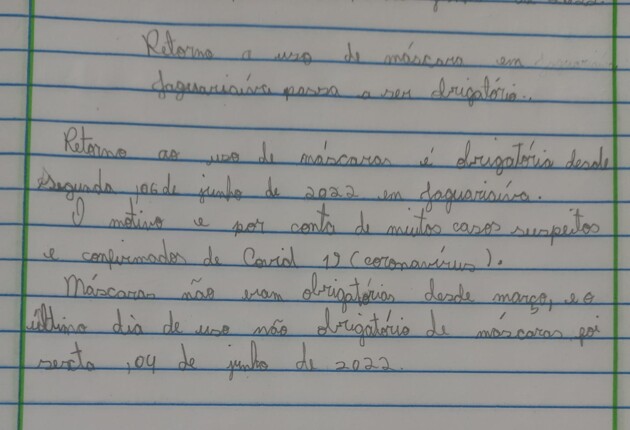 Retorno a uso de máscara em
Jaguariaíva passa a ser obrigatório..
Retorno ao uso de máscaras é obrigatório desde
segunda ,06 de junho de 2022 em Jaguariaíva.
O motivo e por conta de muitos casos suspeitos
e confirmados de Covid 19 (coronavírus).
Máscaras não eram obrigatórias desde março, e o
último dia de uso não obrigatório de máscaras foi
sexta ,04 de junho de 2022.